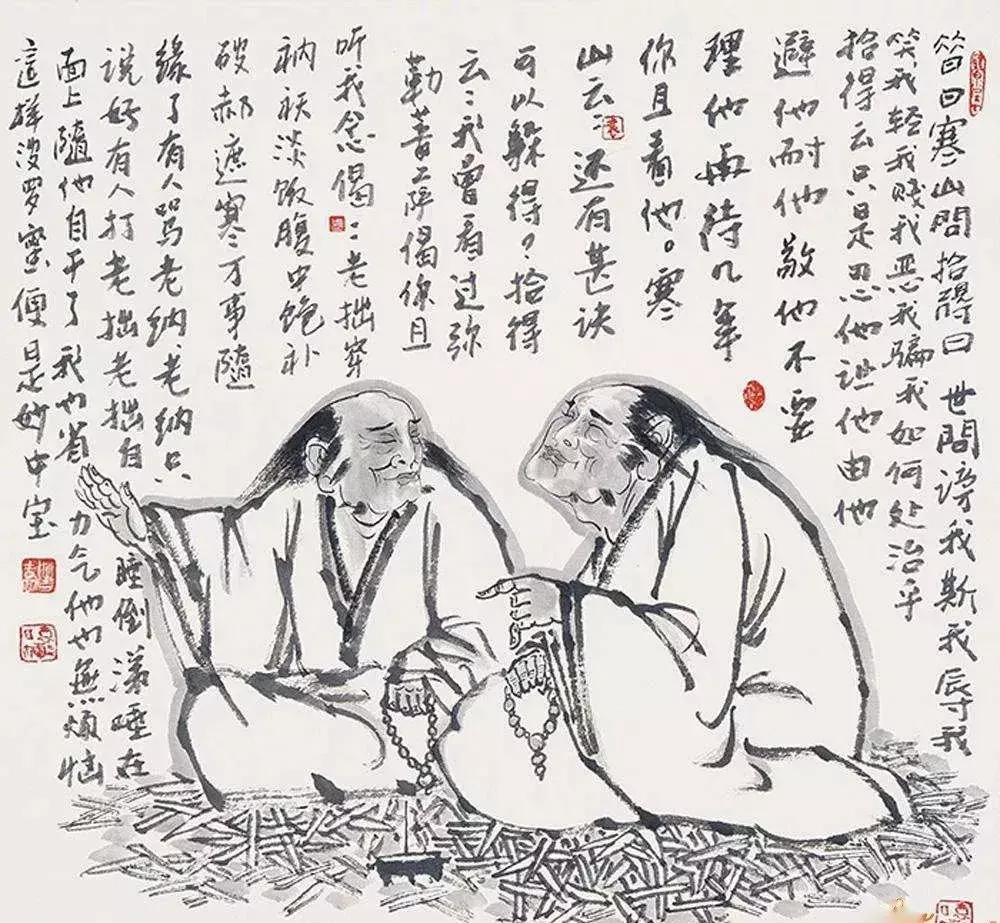 昔日寒山問拾得曰 世間謗我斯我辱我
笑我轻我贱我恶我騙我如何处治乎
拾得云只是忍他让他由他
避他耐他敬他不要
理他再待几年
你且看他。寒
山云：还有甚诀
可以躲得？拾得
云：我曾看过弥
勒菩萨偈你且
听我念偈：老拙穿
衲袄淡饭腹中饱补
破郝遮寒万事隨
缘了有人骂老纳、老纳只
说好有人打老拙老拙自睡倒涕唾在
面上隨他自干了我也省力气他也無烦恼
這样波罗蜜便是妙中宝